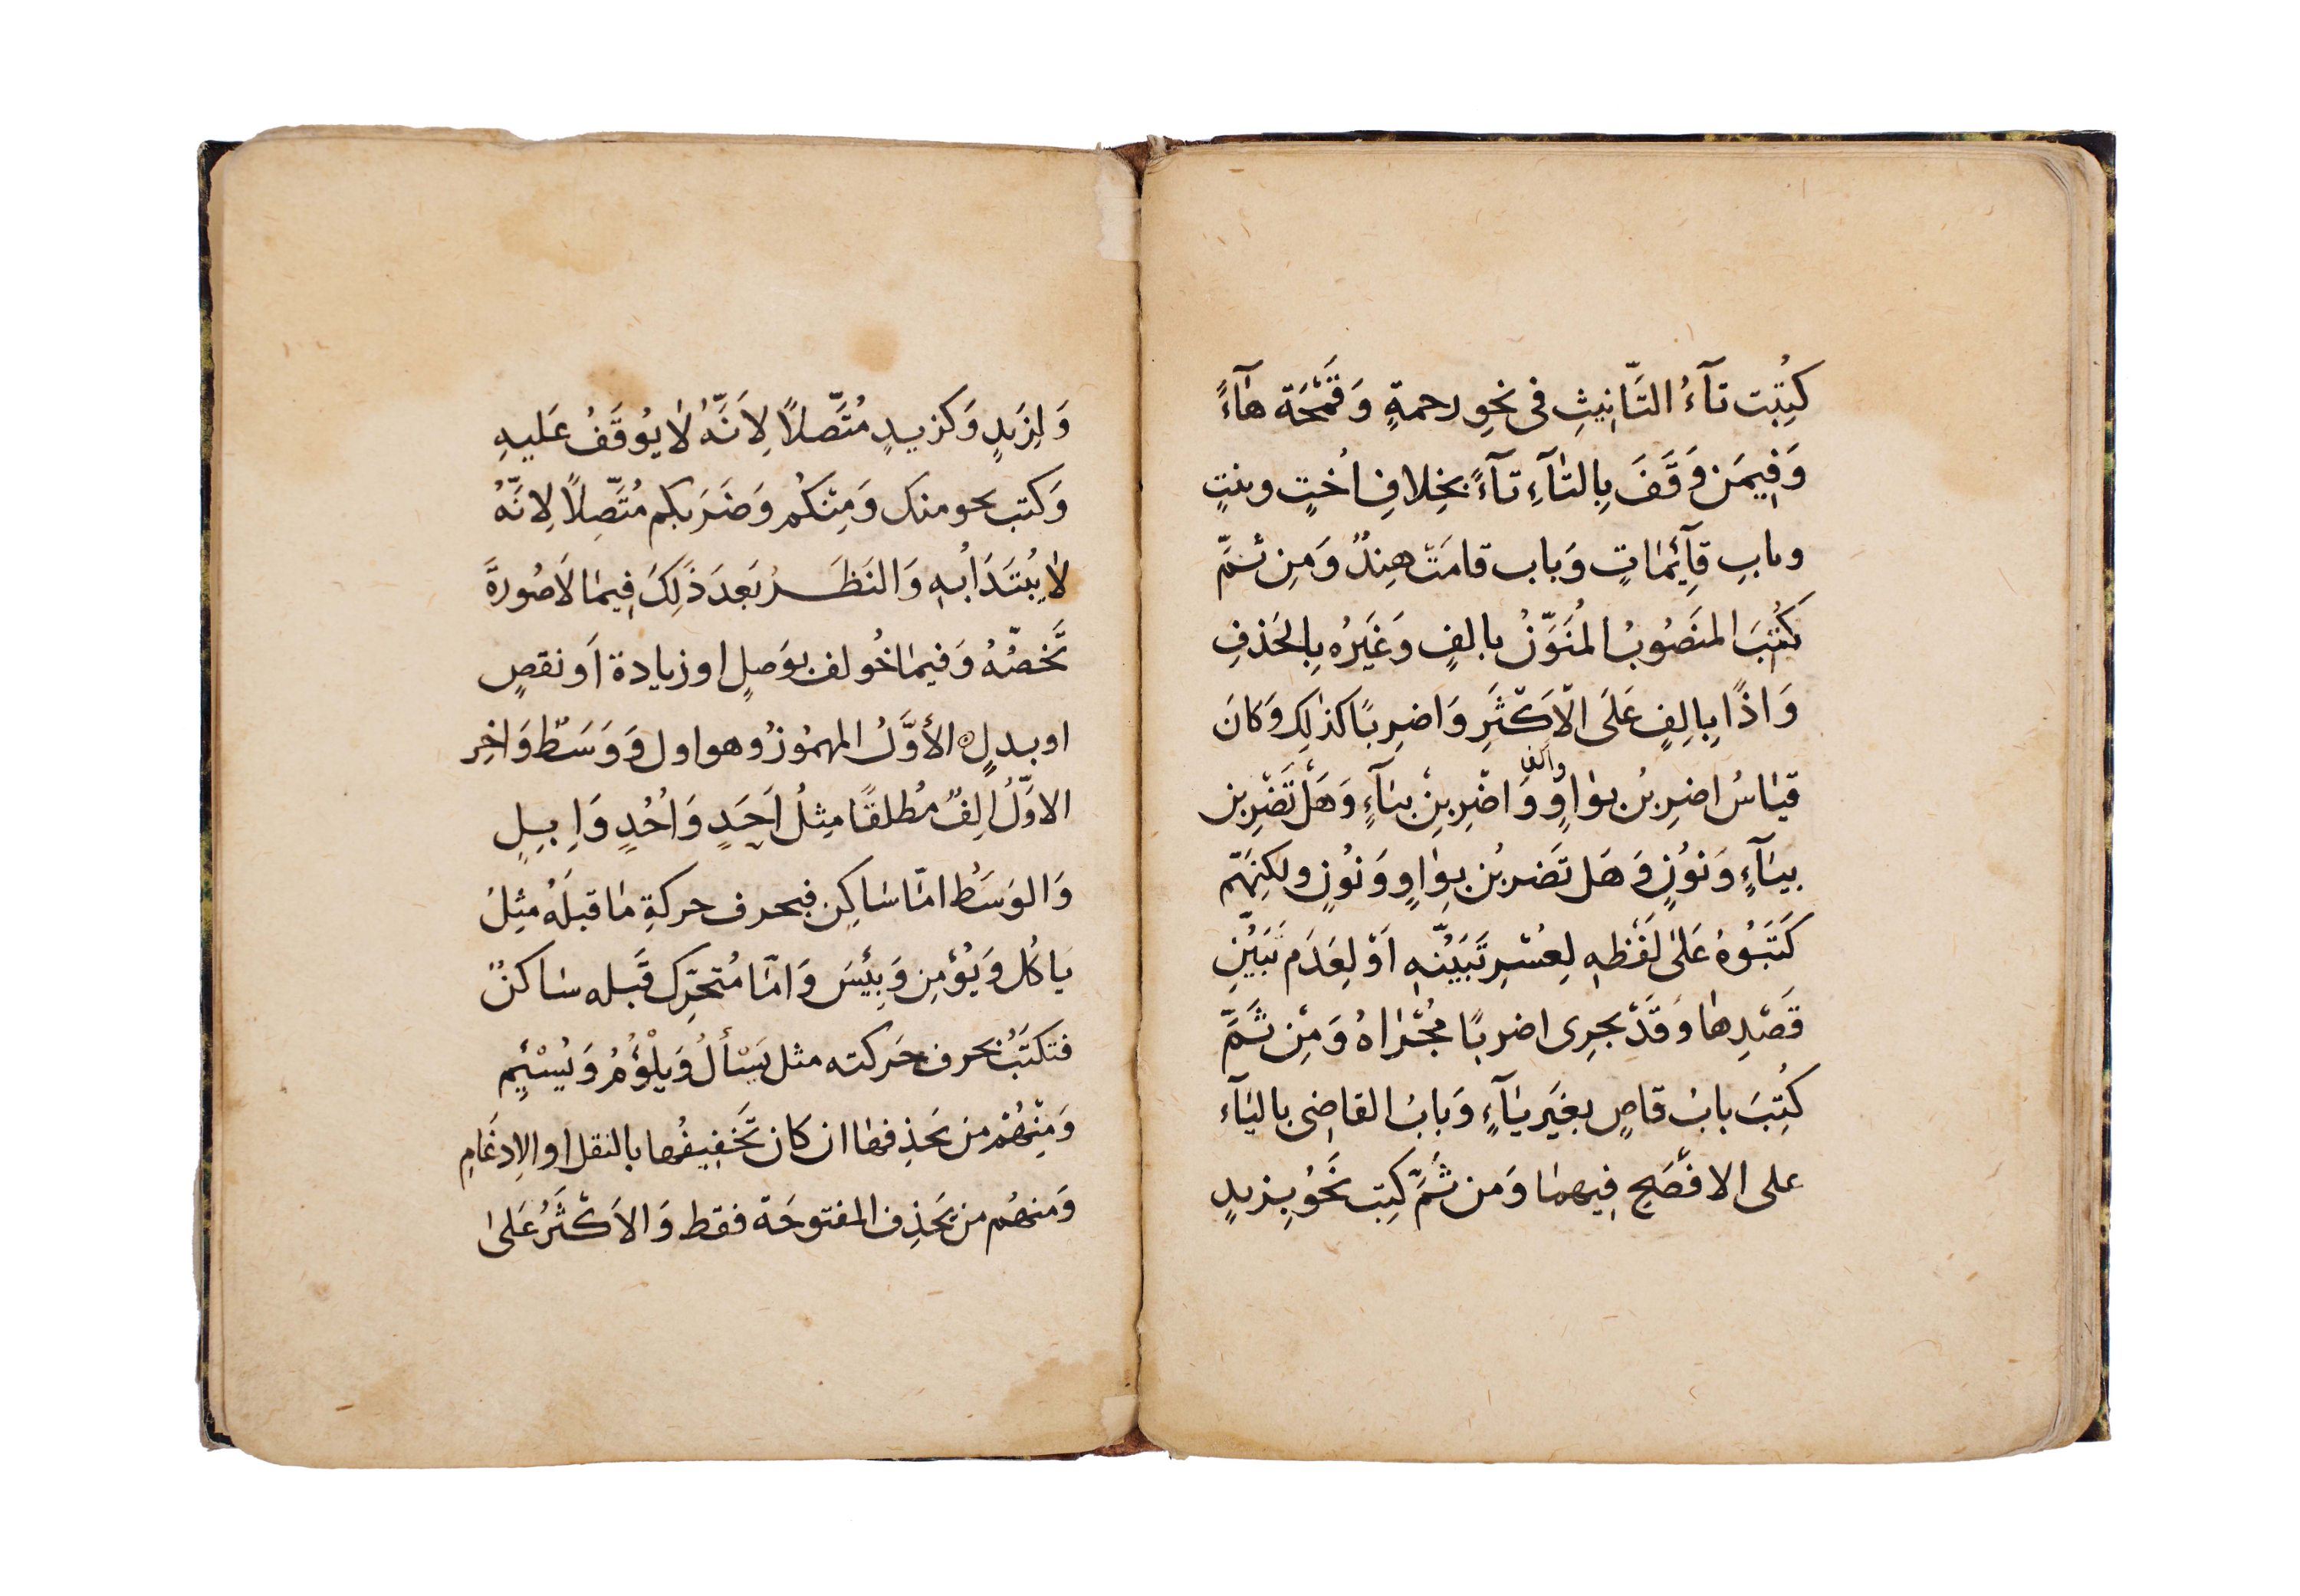 كُتِبَت تآءُ التَّانِيثِ فى نحوِ رحمةٍ وَقَمْحَة هآءً
وَفِيمَن وَقَفَ بِالتآءِ تآءً بخِلافِ اُختٍ وبنتٍ
وبابِ قآئِمَاتٍ وَباب قامَتْ هِندٌ وَمِن ثَمَّ
كُتِبَ المنَصُوبُ المُنَوَّنُ بالفٍ وَغَيَرُه بِالحَذفِ
وَاذًا بِالِفٍ عَلَى الاَكْثَرِ وَاضرِبًا كذلِك وَكانَ
قيَاسُ اضرِبُن بوَاوٍ والف وَاضْرِبِنْ بيَآءٍ وَهَلْ تَضْرِبن
بيَآءٍ وَنوُنٍ وَهَل تَضربُن بوَاوٍ وَنوُنٍ ولكِنَّهم
كَتَبُوهُ عَلىٰ لَفْظِهِ لِعُسْرِ تَبَيُّنِهِ اَوْ لِعَدَم تَبَيُّنِ
قَصْدِها وَقَدْ يجرِى اضربًا مُجْراهُ وَمِنْ ثَمَّ
كُتِبَ بابُ قاصٍ بغَيَر يَآءٍ وَبابُ القاضِى باليَآء
على الافْصَحِ فِيهمَا وَمن ثَمَّ كتِب نحَوُ بِزيدٍ
وَلِزَيدٍ وَكزيدٍ مُتَّصِلاً لِاَنَّهُ لا يُوقَفُ عَليهِ
وَكتب نحو منك وَمِنكُم وَضَرَبكم مُتَّصِلاً لِانَّهُ
لا يُبتَدَأُ بهِ وَالنَظَرُ بَعدَ ذَلِكَ فِيمَا لاَ صُورةَ
تَخصُّهُ وَفيمَا خُولف بوَصلٍ او زيادة اَو نقصٍ
او بدلٍ الأوَّلُ المهمُوزُ وهو اول وَوَسَطٌ وَاخِر
الاوَّلُ اَلِفٌ مُطلقًا مِثلُ اَحَدٍ وَاُحُدٍ وَاِبِلٍ
وَالوَسَطُ امَّا سَاكِن فبحرف حركةِ مَا قبلَهُ مثِلُ
يَاكُل وَيُؤمِن وَبِئسَ وَامَّا مُتَحَرِّك قَبله سَاكنٌ
فتكتَبُ بحرف حَركته مثل يَسْألُ وَيَلْؤُمُ وَيُسْئِم
وَمِنْهُمْ من يحَذِفها ان كان تَخفِيفُها بالنقل او الاِدغَامِ
وَمنهُم من يَحَذِف المفتوحَة فقط وَالاَكْثَرُ عَلىٰ